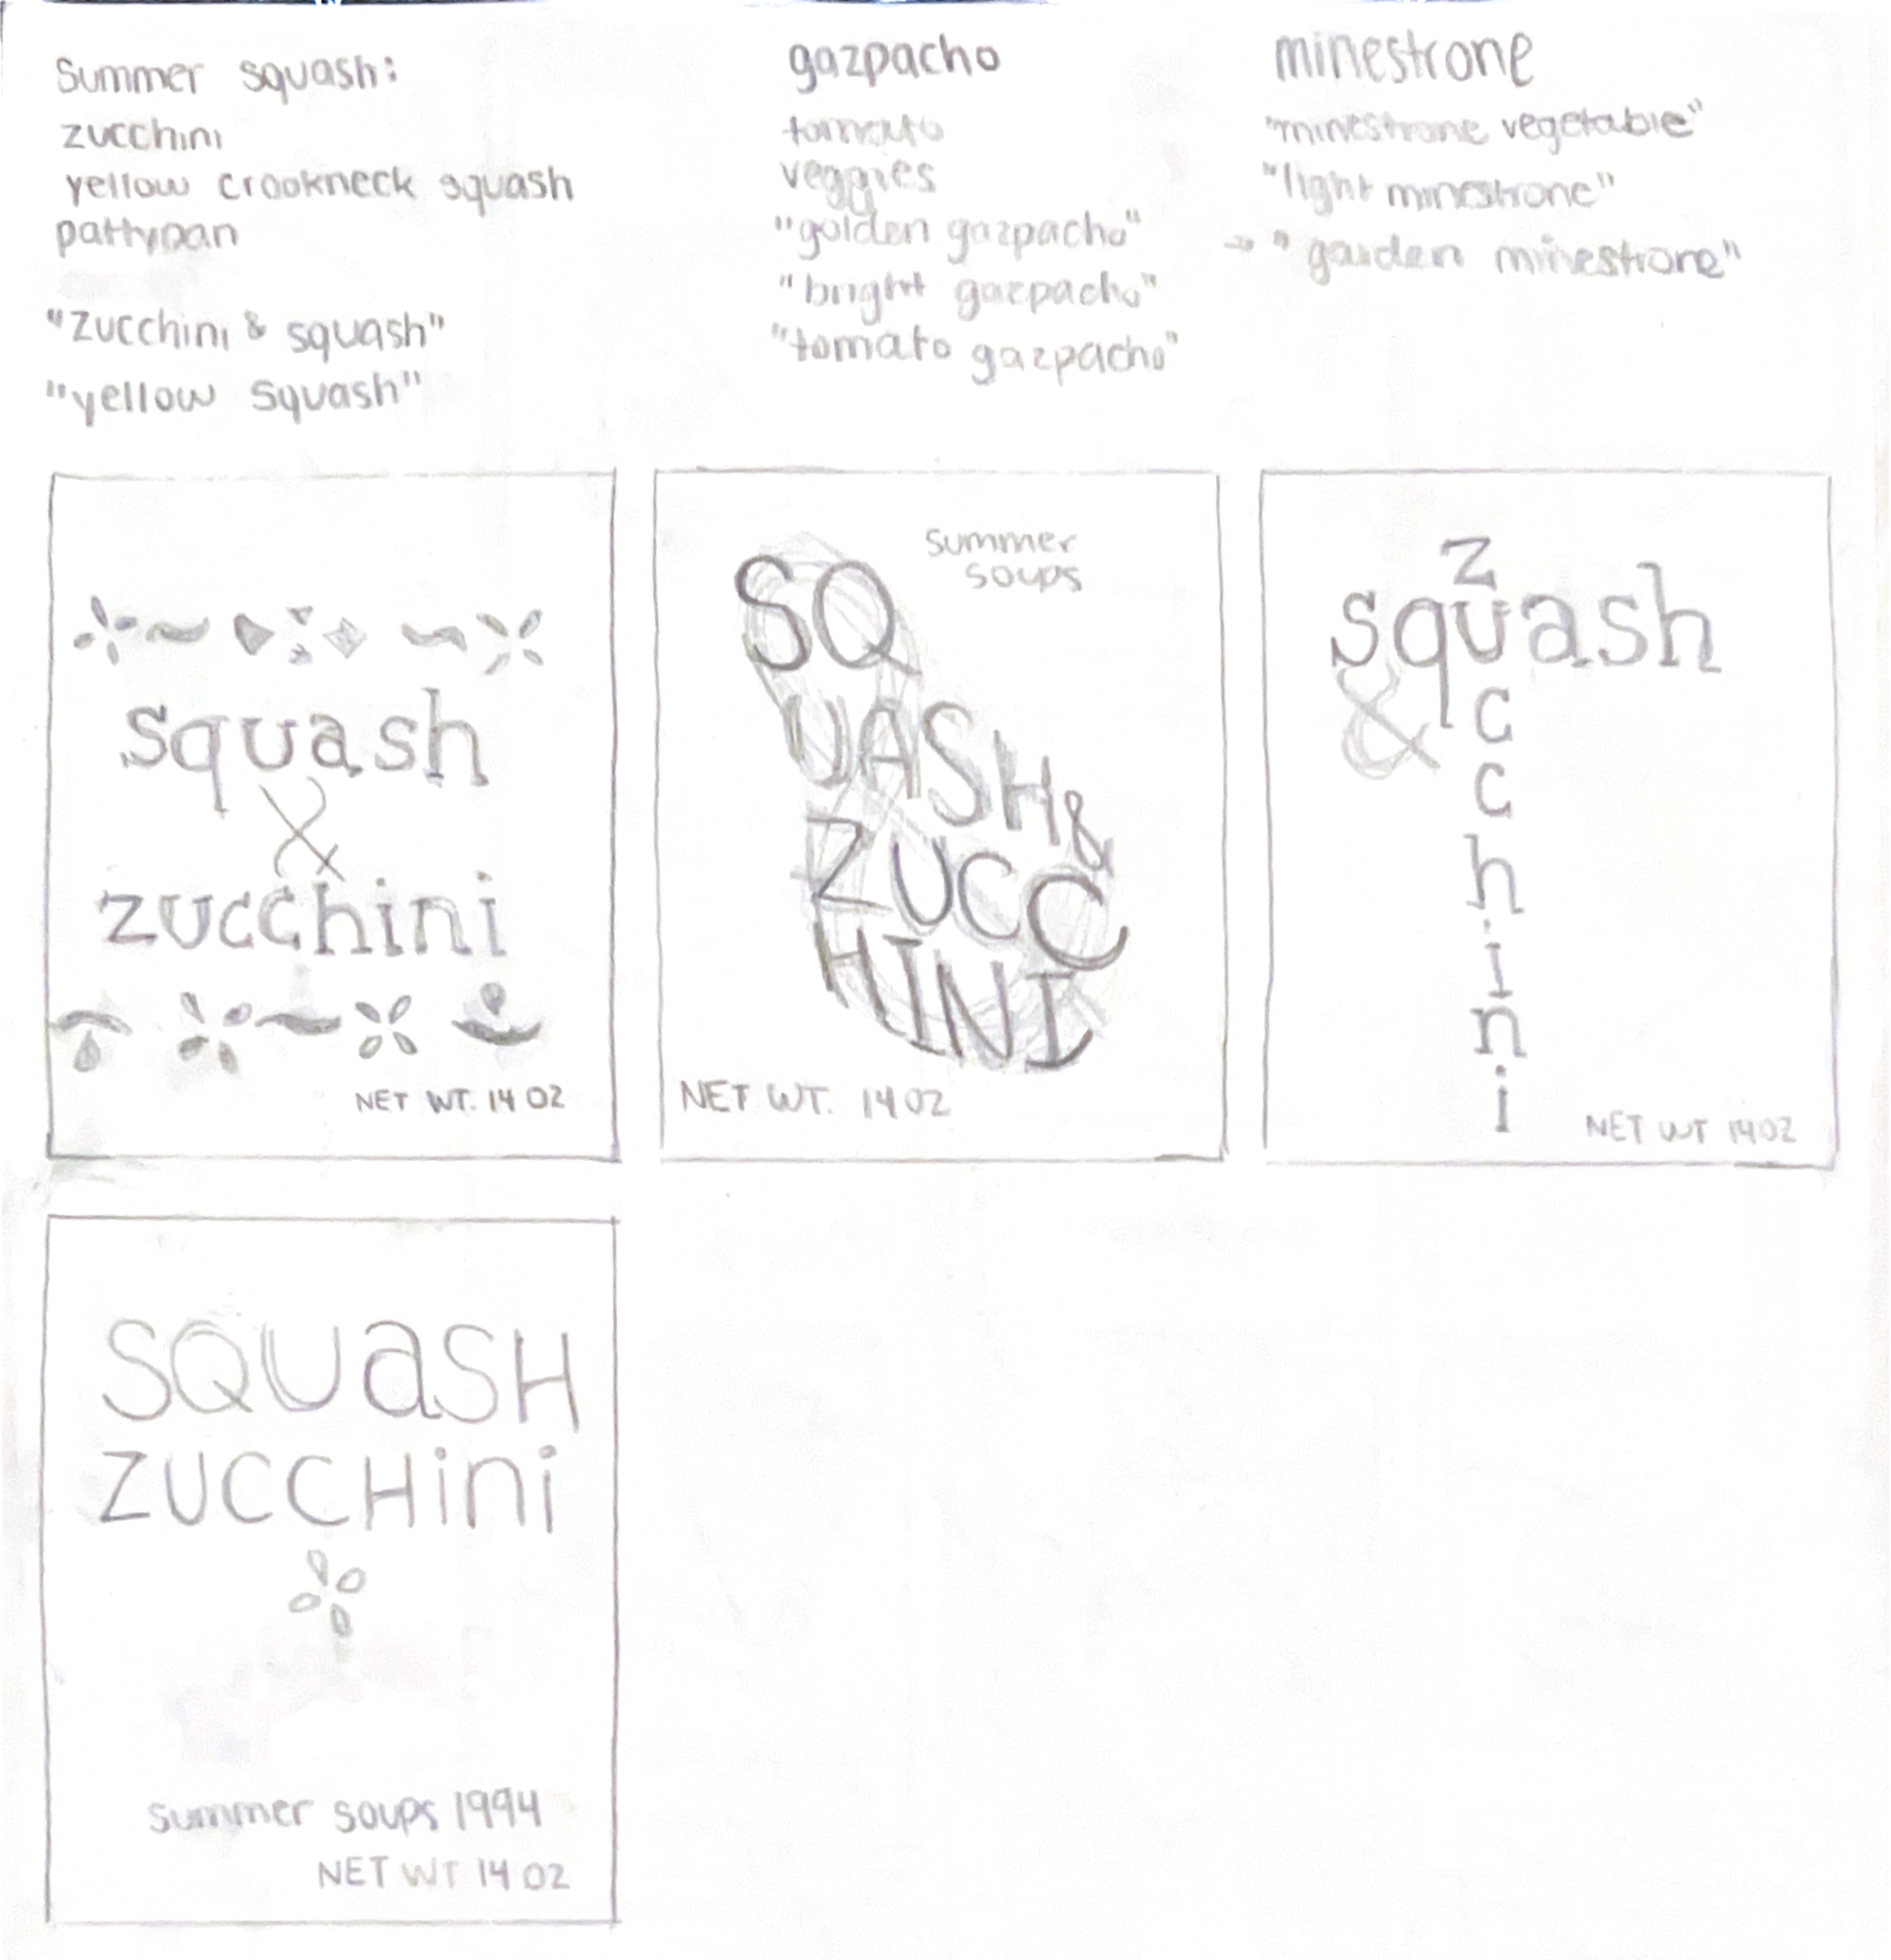 Summer squash:
zucchini
yellow crookneck squash
pattypan
"Zucchini & squash"
"yellow squash"
gazpacho
tomato
veggies
"golden gazpacho"
"bright gazpacho"
"tomato gazpacho"
minestrone
"minestrone vegetable"
"light minestrone"
→ "garden minestrone"
squash
&
zucchini
NET WT. 14 OZ
summer
soups
SQ
UASH &
ZUCC
HINI
NET WT. 14 OZ
z
squash
&
c
c
h
i
n
i
NET WT 14 OZ
SQUaSH
ZUCCHini
summer soups 1994
NET WT 14 OZ